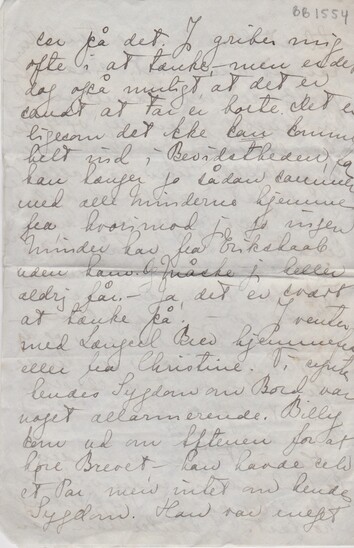 BB1554
cer på det. Jeg griber mig
ofte i at tænke, men er det
dog også muligt, at det er
sandt at Far er borte. Det er
ligesom det ikke kan komme
helt ind i Bevidstheden,
han hænger jo sådan sammen
med alle Minderne hjemme
fra, hvorimod j. jo ingen
Minder har fra Erikshaab
uden ham. måske j. heller
aldrig får. – ja det er svært
at tænke på. – I venter
med Længsel Brev hjemmefra
eller fra Christine. Vi syntes
hendes Sygdom om Bord var
noget allarmerende. Billy
kom ud om Aftenen for at
høre Brevet – han havde selv
et Par men intet om hendes
Sygdom. Han var meget